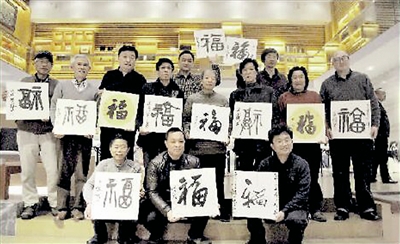 福
福
福
福
福
福
福
福
福
福
福
福
福